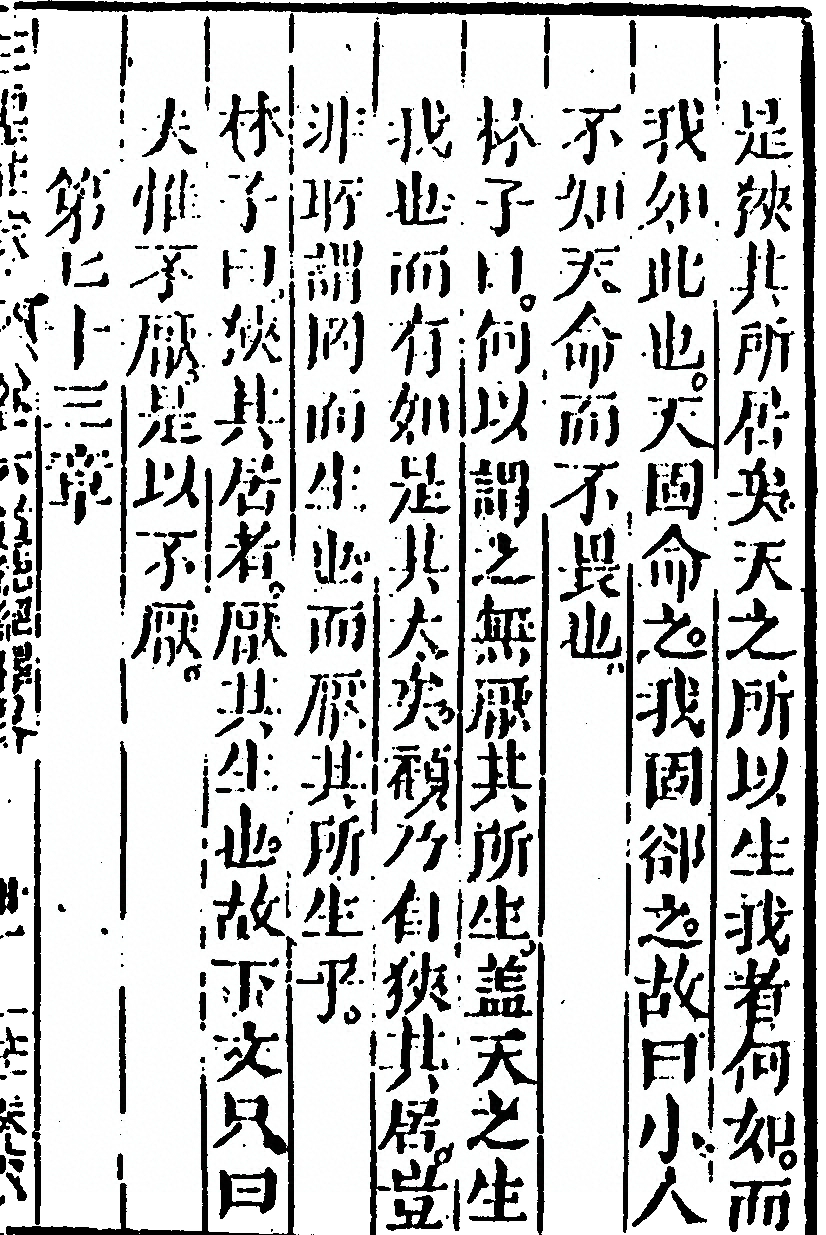 是狹其所居矣天之所以生我者何如。而
我如此也。天固命之。我固卻之。故曰小人
不知天命而不畏也。
林子曰。何以謂之無厭其所生。蓋天之生
我也而有如是其大矣。顧乃自狹其居。豈
非所謂罔而生也而厭其所生乎。
林子曰狹其居者。厭其生也。故下文只曰
夫惟不厭。是以不厭。
第七十三章